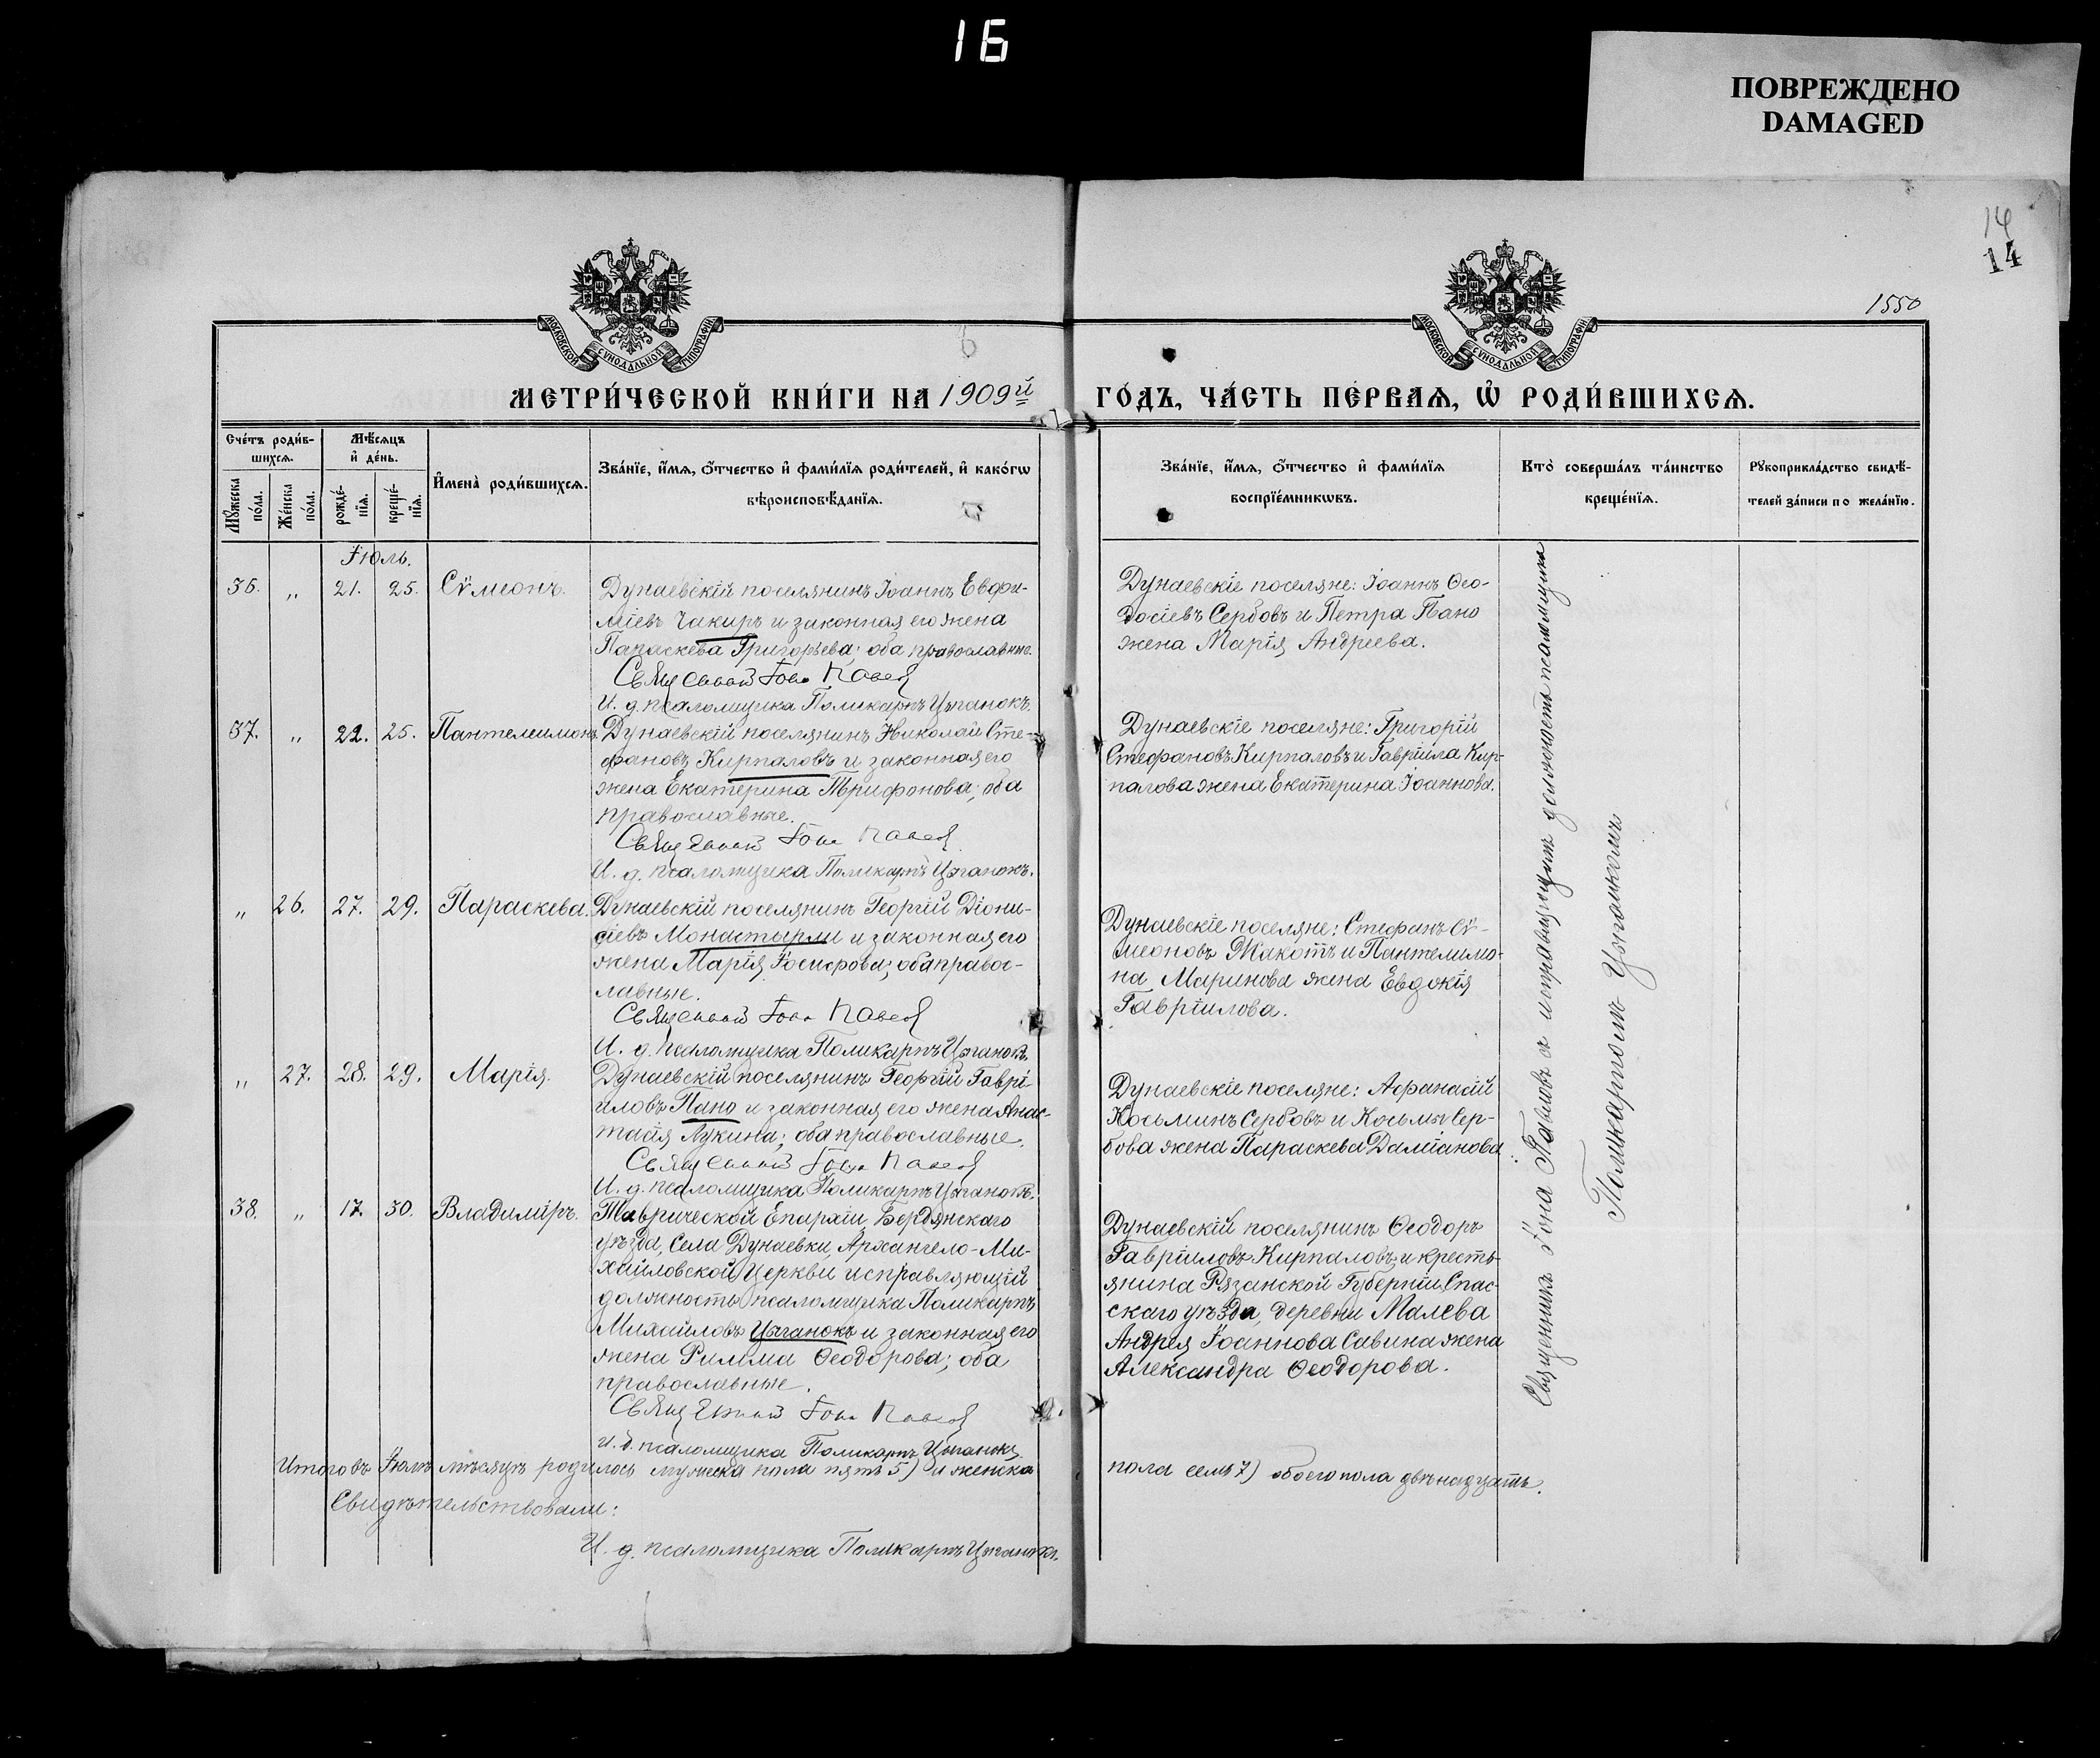 16
ПОВРЕЖДЕНО
DAMAGED
14
14
1550
МОСКОВСКОЙ СѴНОДАЛЬНОЙ ТИПОГРАФІИ
МОСКОВСКОЙ СѴНОДАЛЬНОЙ ТИПОГРАФІИ
МЕТРИ́ЧЕСКОЙ КНИ́ГИ НА 1909й ГО́ДЪ, ЧА́СТЬ ПЕ́РВАѦ, Ѽ РОДИ́ВШИХСѦ.
Сче́тъ роди́в-
шихсѧ.
Мꙋ́жеска по́ла.
Же́нска по́ла.
Мѣ́сѧцъ
и҆ де́нь.
рожде́-
нїѧ.
креще́-
нїѧ.
И҆мена̀ роди́вшихсѧ.
Зва́нїе, и҆́мѧ, ѻ҆́тчество и҆ фами́лїѧ роди́телей, и҆ како́гѡ
вѣроисповѣ́данїѧ.
Зва́нїе, и҆́мѧ, ѻ҆́тчество и҆ фами́лїѧ
воспрїе́мникѡвъ.
Кто̀ соверша́лъ та́инство
креще́нїѧ.
Рꙋкоприкла́дство свидѣ́-
телей за́писи по жела́нїю.
Іюль.
36. „ 21. 25. Сѷмеонъ.
Дунаевскій поселянинъ Іоаннъ Евфи-
міевъ Чакиръ и законная его жена
Параскева Григорьева; оба православные.
Священник Іона Павлов
И. д. псаломщика Поликарпъ Цыганокъ.
Дунаевскіе поселяне: Іоаннъ Ѳео-
досіевъ Сербовъ и Петра Пано
жена Марія Андреева.
37. „ 22. 25. Пантелеимонъ.
Дунаевскій поселянинъ Николай Сте-
фановъ Кирпаловъ и законная его
жена Екатерина Трифонова; оба
православные.
Священник Іона Павлов
И. д. псаломщика Поликарпъ Цыганокъ.
Дунаевскіе поселяне: Григорій
Стефановъ Кирпаловъ и Гавріила Кир-
палова жена Екатерина Іоаннова.
„ 26. 27. 29. Параскева.
Дунаевскій поселянинъ Георгій Діони-
сіевъ Монастырли и законная его
жена Марія Іосифова; оба правос-
лавные.
Священник Іона Павлов
И. д. псаломщика Поликарпъ Цыганокъ.
Дунаевскіе поселяне: Стефанъ Сѷ-
меоновъ Жакотъ и Пантелимо-
на Маринова жена Евдокія
Гавріилова.
„ 27. 28. 29. Марія.
Дунаевскій поселянинъ Георгій Гаврі-
иловъ Пано и законная его жена Анас-
тасія Лукина; оба православные.
Священник Іона Павлов
И. д. псаломщика Поликарпъ Цыганокъ.
Дунаевскіе поселяне: Аѳанасій
Косьминъ Сербовъ и Косьмы Сер-
бова жена Параскева Даміанова.
38. „ 17. 30. Владиміръ.
Таврической Епархіи, Бердянскаго
уѣзда, Села Дунаевки, Архангело-Ми-
хайловской Церкви исправляющій
должность псаломщика Поликарпъ
Михайловъ Цыганокъ и законная его
жена Римма Ѳеодорова; оба
православные.
Священник Іона Павлов
И. д. псаломщика Поликарпъ Цыганокъ.
Дунаевскій поселянинъ Ѳеодоръ
Гавріиловъ Кирпаловъ, и кресть-
янина Рязанской Губерніи, Спас-
скаго уѣзда, деревни Малева
Андрея Іоаннова Савина жена
Александра Ѳеодорова.
Священникъ Іона Павловъ съ исправляющимъ должность псаломщика
Поликарпомъ Цыганкомъ
Итого въ Іюлѣ мѣсяцѣ родилось мужеска пола пять 5) и женска пола семь 7) обоего пола двѣнадцать.
Свидѣтельствовали:
И. д. псаломщика Поликарпъ Цыганокъ.